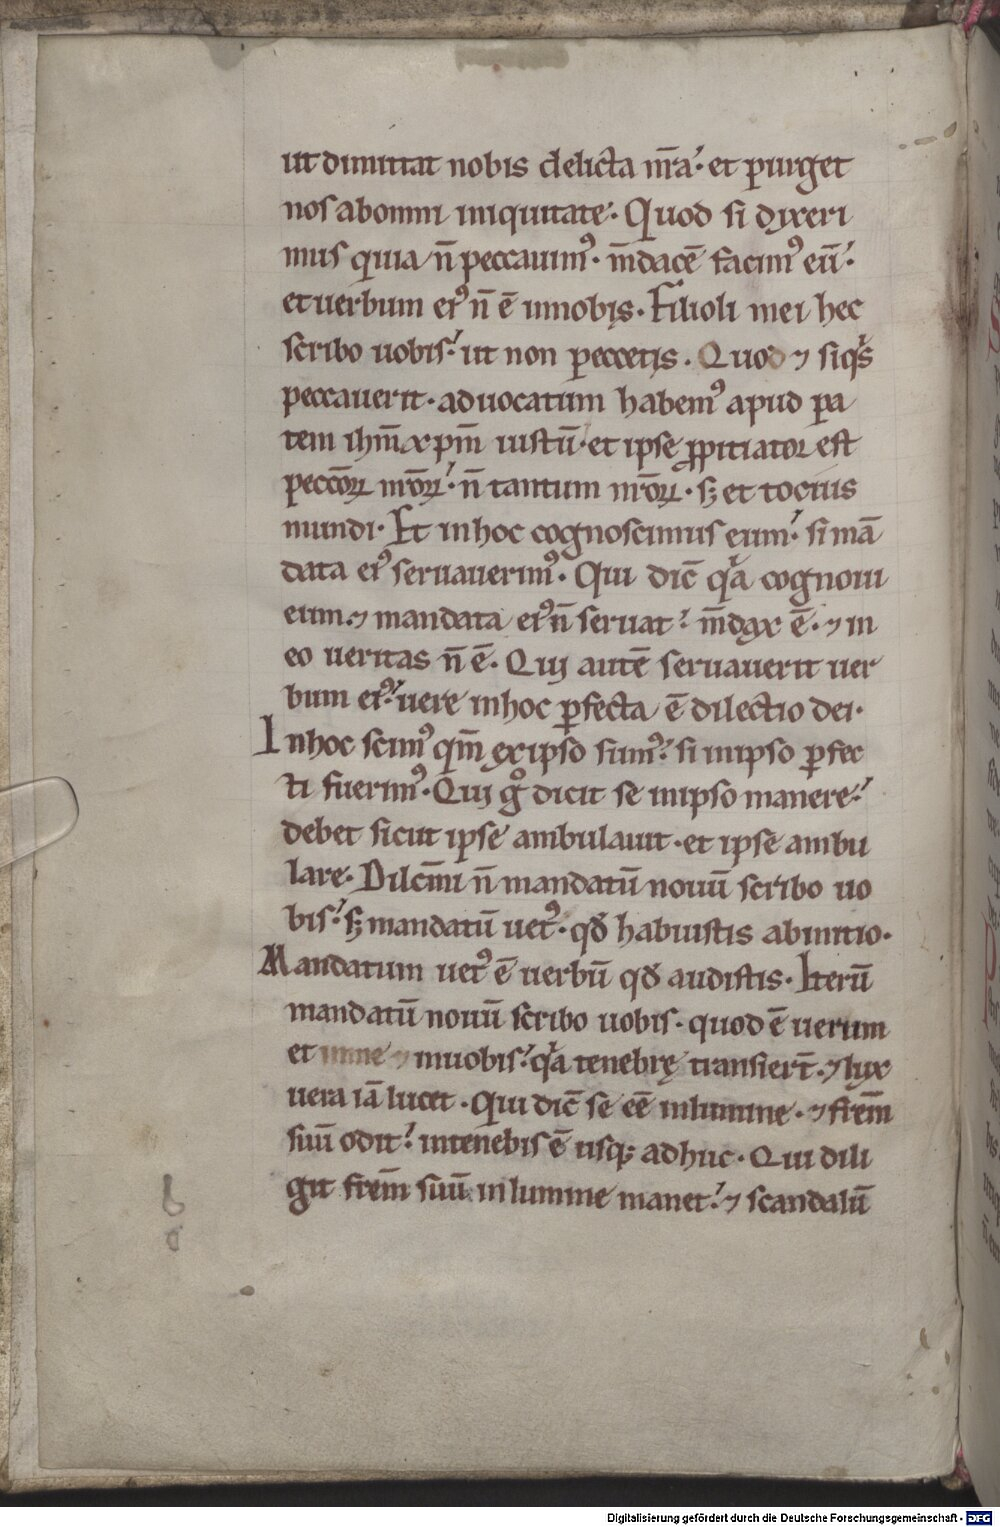 ut dimittat nobis delicta nr̄a. et ꝑurget
nos abomni iniquitate. Quod si dyxeri
mus quia n̄ peccauimꝰ. m̄dacē facimꝰ eū.
et uerbum eiꝰ n̄ ē innobis. Filioli mei hec
scribo uobis. ut non peccetis. Quod ⁊ siqͥs
peccauerit. aduocatum habemꝰ apud pa
tem ihm̄ xpm̄ iustū. et ipse ꝓpitiator est
peccōꝝ nr̄oꝝ. n̄ tantum nr̄oꝝ. sꝫ et tocius
mundi. Et inhoc cognoscimus eum. si mā
data eiꝰ seruauerimꝰ. Qui dic̄ qͥa cognoui
eum. ⁊ mandata eiꝰ n̄ seruat. m̄dax ē. ⁊ in
eo ueritas n̄ ē. Qui autē seruauerit uer
bum eiꝰ. uere inhoc ꝑfecta ē dilectio dei.
Inhoc scimꝰ qm̄ exipso sumꝰ. si inipso ꝑfec
ti fuerimꝰ. Qui gͦ dicit se inipso manere.
debet sicut ipse ambulauit. et ipse ambu
lare. Dilcm̄i n̄ mandatū nouū scribo uo
bis. sꝫ mandatū uetꝰ. qđ habuistis abinitio.
Mandatum uetꝰ ē uerbū qđ audistis. Iterū
mandatū nouū scribo uobis. quod ē uerum
et inuobis. qͥa tenebrę transiert̄. ⁊ lyx
uera iā lucet. Qui dic̄ se eē inlumine. ⁊ frēm
suū odit. intenebis ē usqꝫ adhuc. Qui dili
git frēm suū inlumine manet. ⁊ scandalū
Digitalisierung gefördert durch die Deutsche Forschungsgemeinschaft - DFG